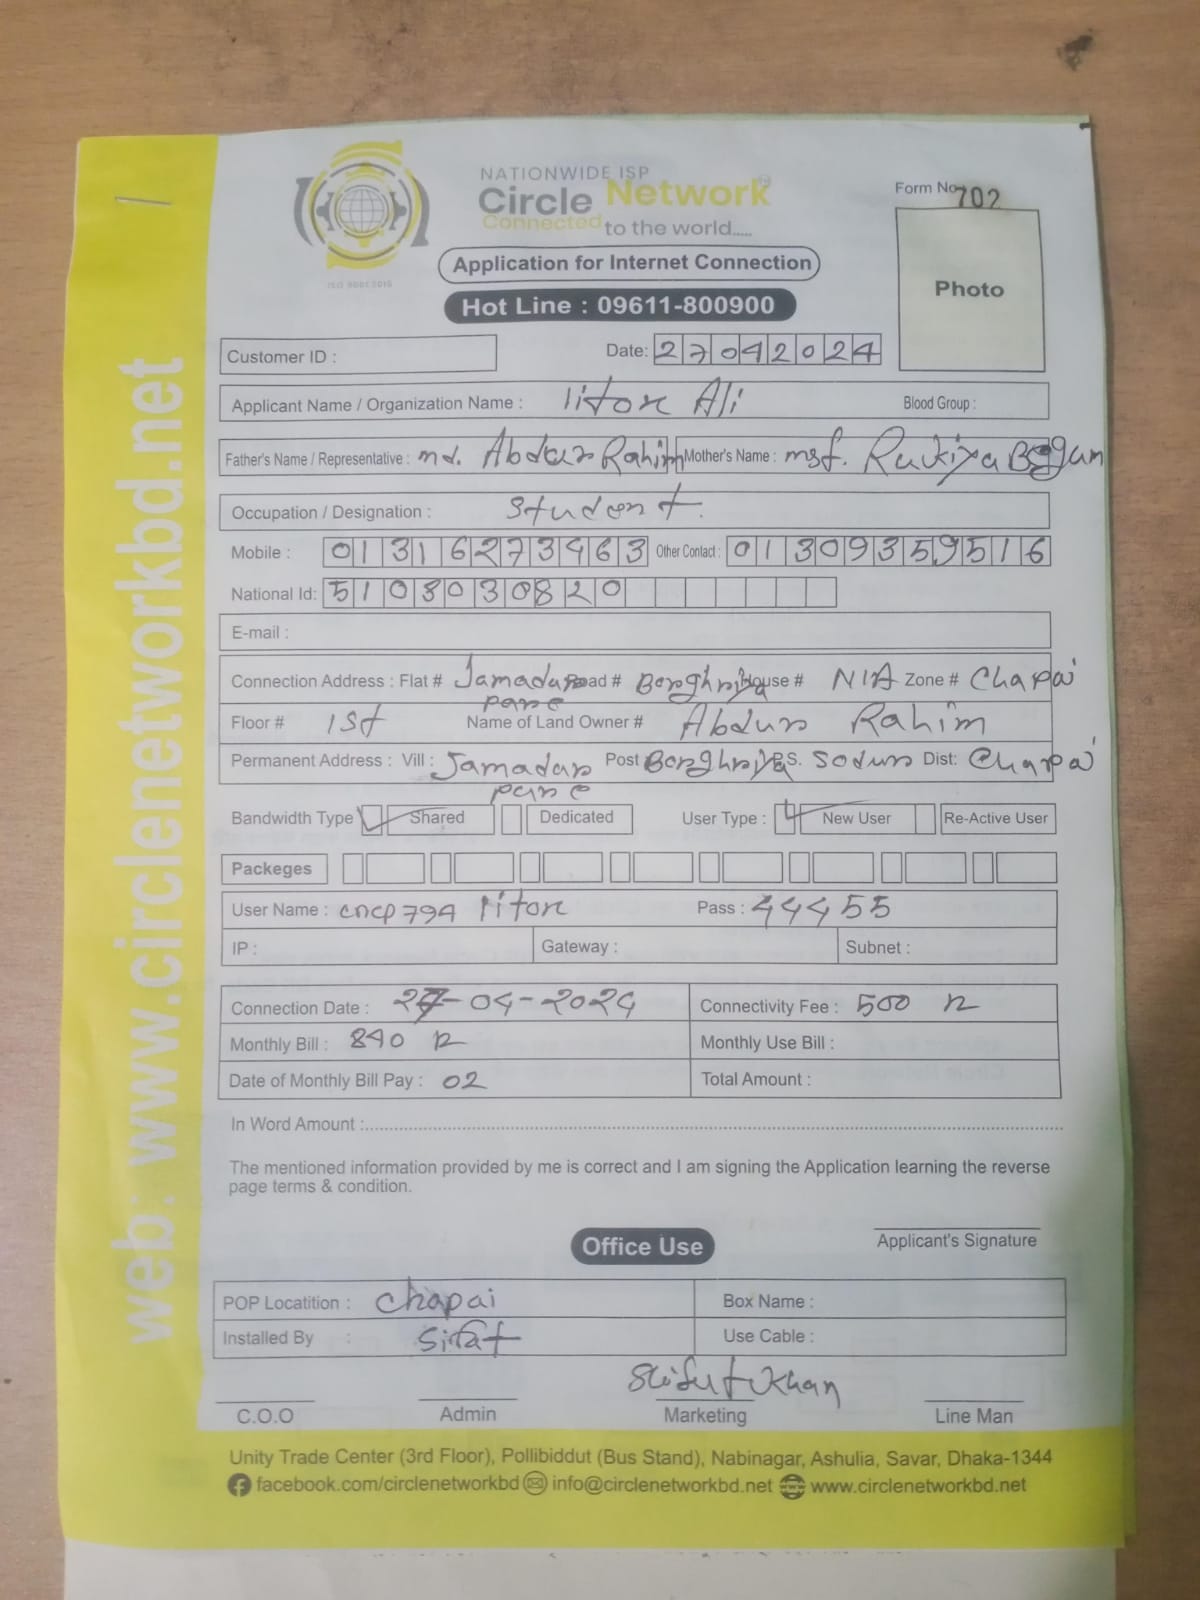 NATIONWIDE ISP
Circle Network
Connected to the world.....
ISO 9001:2015
Form No 702
Application for Internet Connection
Photo
Hot Line : 09611-800900
Customer ID : Date: 27042024
Applicant Name / Organization Name : liton Ali Blood Group :
Father's Name / Representative : md. Abdur Rahim Mother's Name : mst. Rukiya Begum
Occupation / Designation : Student.
Mobile : 01316273463 Other Contact : 01309359516
National Id: 5108030820
E-mail :
Connection Address : Flat # Jamadar para Road # House # N/A Zone # Chapai
Floor # 1st Name of Land Owner # Abdur Rahim
Permanent Address : Vill : Jamadar para Post P.S. Sodur Dist: Chapai
Bandwidth Type Shared Dedicated User Type : New User Re-Active User
Packeges
User Name : cncp794 liton Pass : 44455
IP : Gateway : Subnet :
Connection Date : 27-04-2024 Connectivity Fee : 500
Monthly Bill : 840 Monthly Use Bill :
Date of Monthly Bill Pay : 02 Total Amount :
In Word Amount :
The mentioned information provided by me is correct and I am signing the Application learning the reverse
page terms & condition.
Applicant's Signature
Office Use
POP Locatition : Chapai Box Name :
Installed By : Sifat Use Cable :
Khan
C.O.O Admin Marketing Line Man
Unity Trade Center (3rd Floor), Pollibiddut (Bus Stand), Nabinagar, Ashulia, Savar, Dhaka-1344
facebook.com/circlenetworkbd info@circlenetworkbd.net www.circlenetworkbd.net
web: www.circlenetworkbd.net